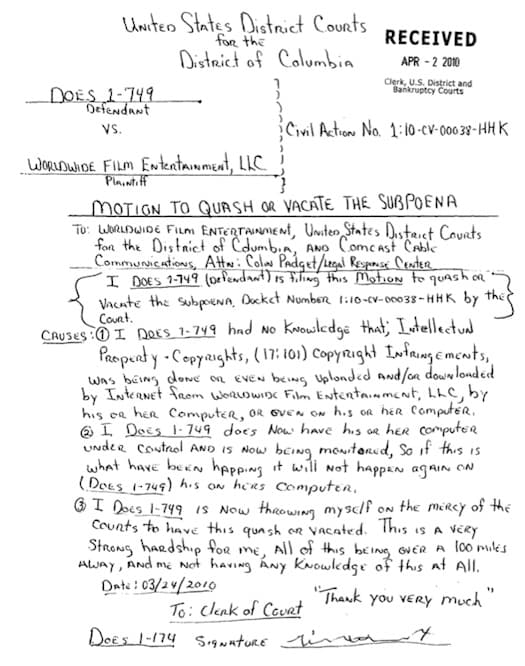 United States District Courts
for the
District of Columbia
RECEIVED
APR - 2 2010
Clerk, U.S. District and
Bankruptcy Courts
DOES 1-749
Defendant
vs.
Civil Action No. 1:10-CV-00038-HHK
WORLDWIDE FILM ENTERTAINMENT, LLC
Plaintiff
MOTION TO QUASH OR VACATE THE SUBPOENA
To: WORLDWIDE FILM ENTERTAINMENT, United States District Courts
for the District of Columbia, AND Comcast Cable
Communications, Attn: Colin Padget/Legal Response Center
I DOES 1-749 (Defendant) is filing this Motion to quash or
Vacate the Subpoena, Docket Number 1:10-CV-00038-HHK by the
Court.
CAUSES: ① I DOES 1-749 had no knowledge that; Intellectual
Property - Copyrights, (17:101) Copyright Infringements,
was being done or even being uploaded and/or downloaded
by Internet from Worldwide Film Entertainment, LLC, by
his or her computer, or even on his or her computer.
② I Does 1-749 does Now have his or her computer
under control and is now being monitored, so if this is
what have been happing it will not happen again on
(Does 1-749) his on hers computer.
③ I Does 1-749 is Now throwing myself on the mercy of the
courts to have this quash or vacated. This is a very
strong hardship for me, all of this being over a 100 miles
away, and me not having any knowledge of this at all.
Date: 03/24/2010
"Thank you very much"
To: Clerk of Court
Does 1-174 Signature